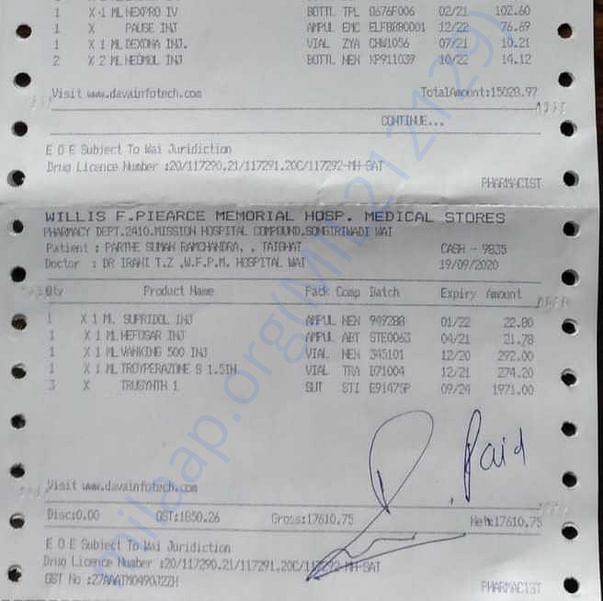 1 X 1 ML NEXPRO IV BOTTL TPL 0676F006 02/21 102.60
1 X PAUSE INJ AMPUL EMC ELFBRB0001 12/22 76.69
1 X 1 ML DEXONA INJ. VIAL ZYA CHW1056 07/21 10.21
2 X 2 ML NEOMOL INJ BOTTL NEN XP911039 10/22 14.12
Visit www.davainfotech.com TotalAmount:15028.97
CONTINUE...
E O E Subject To Wai Juridiction
Drug Licence Number :20/117290,21/117291,20C/117292-MH-SAT
PHARMACIST
WILLIS F.PIEARCE MEMORIAL HOSP. MEDICAL STORES
PHARMACY DEPT.2410.MISSION HOSPITAL COMPOUND.SONGIRIWADI WAI
Patient : PARTHE SUMAN RAMCHANDRA, , TAIGHAT CASH - 9835
Doctor : DR IRAHI T.Z ,W.F.P.M. HOSPITAL WAI 19/09/2020
Qty Product Name Pack Comp Batch Expiry Amount
1 X 1 ML SUPRIDOL INJ AMPUL NEN 949288 01/22 22.80
1 X 1 ML NEFOSAR INJ AMPUL ABT STE0063 04/21 21.78
1 X 1 ML VANKING 500 INJ VIAL NEN 345101 12/20 292.00
1 X 1 ML TROYPERAZONE S 1.5IN VIAL TRA E71004 12/21 274.20
3 X TRUSYNTH 1 SUT STI E91475P 09/24 1971.00
Paid
Visit www.davainfotech.com
Disc:0.00 GST:1850.26 Gross:17610.75 Net:17610.75
E O E Subject To Wai Juridiction
Drug Licence Number :20/117290,21/117291,20C/117292-MH-SAT
GST No :27AAATM0490J2ZH
PHARMACIST